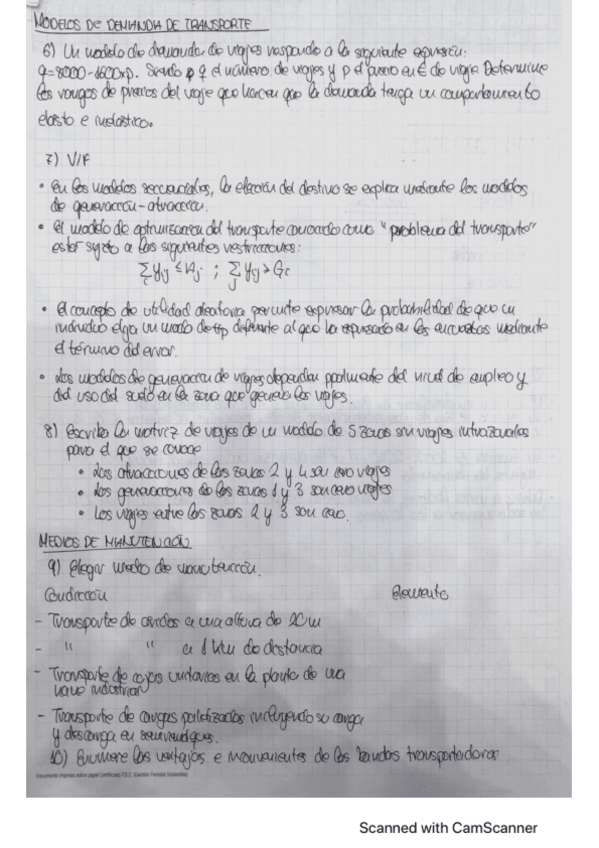 MODELOS DE DEMANDA DE TRANSPORTE
6) Un modelo de demanda de viajes responde a la siguiente expresión:
q=8000-1600xp. Siendo q el número de viajes y p el precio en € de viaje. Determine
los rangos de precios del viaje que hacen que la demanda tenga un comportamiento
elástico e inelástico.
7) V/F
• En los modelos secuenciales, la elección del destino se explica mediante los modelos
de generación-atracción.
• El modelo de optimización del transporte conocido como "problema del transporte"
está sujeto a las siguientes restricciones:
∑i yij ≤ Aj ; ∑j yij > Gi
• El concepto de utilidad aleatoria permite expresar la probabilidad de que un
individuo elija un modo de ttp diferente al que ha expresado en las encuestas mediante
el término del error.
• Los modelos de generación de viajes dependen ppalmente del nivel de empleo y
del uso del suelo en la zona que genera los viajes.
8) Escriba la matriz de viajes de un modelo de 5 zonas sin viajes intrazonales
para el que se conoce
• Las atracciones de las zonas 2 y 4 son cero viajes
• Las generaciones de las zonas 1 y 3 son cero viajes
• Los viajes entre las zonas 2 y 3 son cero.
MEDIOS DE MANUTENCIÓN
9) Elegir medio de manutención.
Condición Elemento
- Transporte de áridos a una altura de 20m
- " " a 1 km de distancia
- Transporte de cajas unitarias en la planta de una
nave industrial
- Transporte de cargas paletizadas incluyendo su carga
y descarga en
10) Enumere las ventajas e inconvenientes de las bandas transportadoras
Scanned with CamScanner